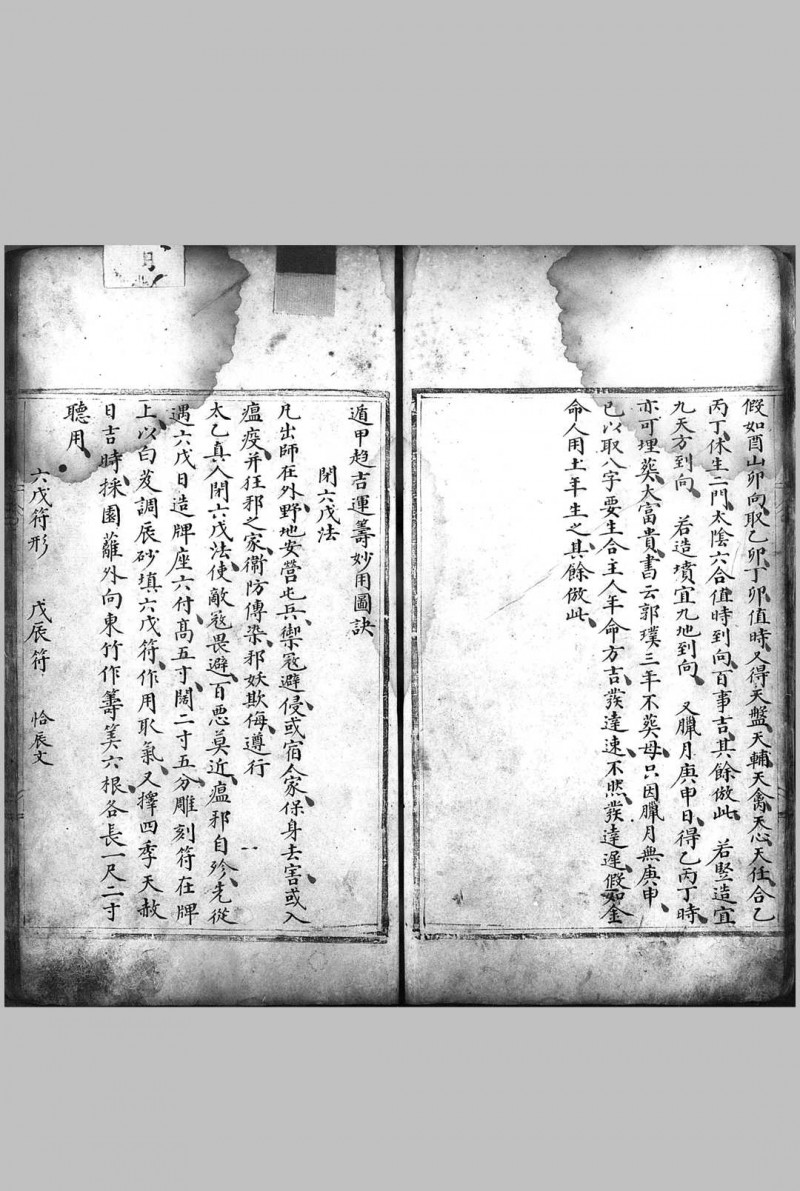 假如酉山卯向取乙卯丁卯值時又得天盤天輔天禽天心天任合乙
丙丁休生二門太陰六合值時到向百事吉其餘倣此　若竪造宜
九天方到向　若造墳宜九地到向　又臘月庚申日得乙丙丁時
亦可埋葬大富貴書云郭璞三年不葬母只因臘月無庚申
已以取八字要生合主人年命方吉發達速不然發達遲假如金
命人用土年生之其餘倣此
遁甲趋吉運籌妙用圖訣
閉六戊法
凡出師在外野地安營屯兵禦寇避侵或宿人家保身去害或入
瘟疫并狂邪之家衛防傳染邪妖欺侮遵行
太乙真人閉六戊法使敵寇畏避百惡莫近瘟邪自殄先從
遇六戊日造牌座六付高五寸闊二寸五分雕刻符在牌
上以白芨調辰砂填六戊符作用取氣又擇四季天赦
日吉時採園蘺外向東竹作籌筭六根各長一尺二寸
聽用
六戊符形　戊辰符　恰辰文
月